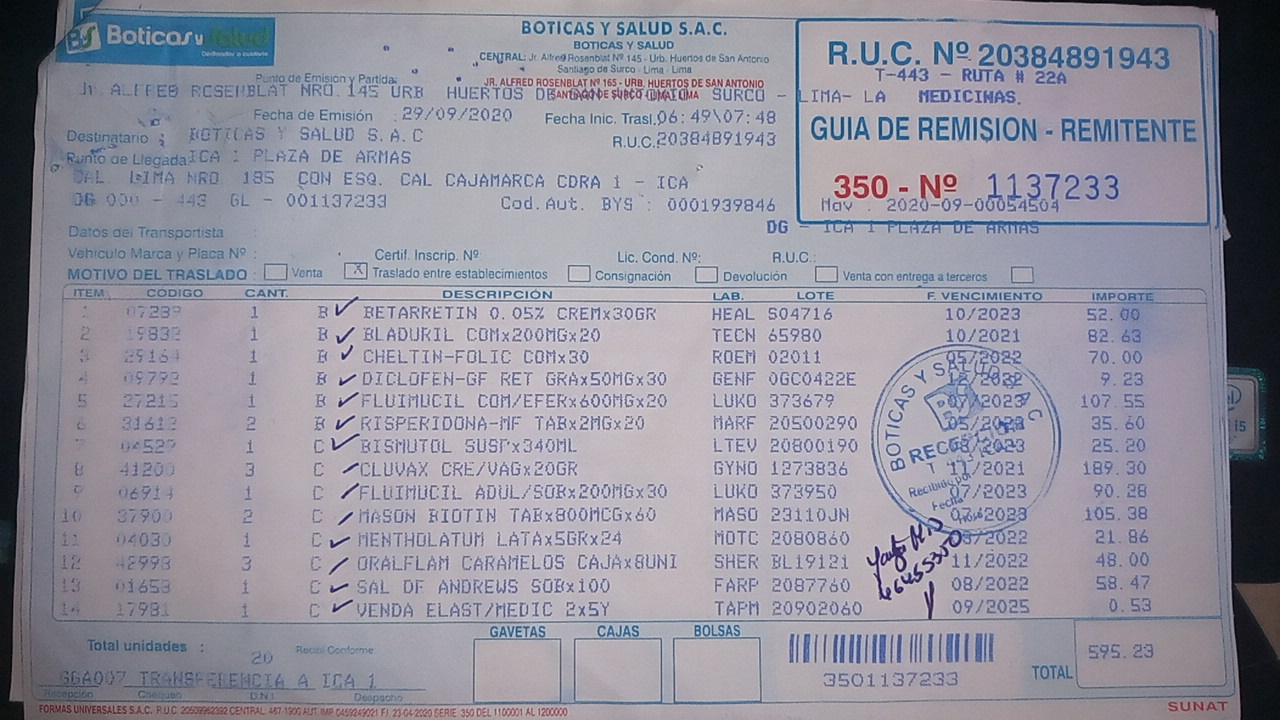 BS Boticas y Salud
BOTICAS Y SALUD S.A.C.
BOTICAS Y SALUD
CENTRAL: Jr. Alfredo Rosenblat Nº 145 - Urb. Huertos de San Antonio
Santiago de Surco - Lima - Lima
JR. ALFRED ROSENBLAT Nº 165 - URB. HUERTOS DE SAN ANTONIO
SANTIAGO DE SURCO - LIMA - LIMA
R.U.C. Nº 20384891943
T-443 - RUTA # 22A
MEDICINAS.
GUIA DE REMISION - REMITENTE
350 - Nº 1137233
Nav : 2020-09-00054504
Punto de Emisión y Partida:
Jr ALFRED ROSENBLAT NRO 145 URB HUERTOS DE SURCO - LIMA- LA
Fecha de Emisión : 29/09/2020 Fecha Inic. Trasl. 06:49\07:48
Destinatario : BOTICAS Y SALUD S.A.C R.U.C. 20384891943
Punto de Llegada: ICA 1 PLAZA DE ARMAS
CAL LIMA NRO 185 CON ESQ. CAL CAJAMARCA CDRA 1 - ICA
DG 000 - 443 GL - 001137233 Cod.Aut. BYS : 0001939846
DG - ICA 1 PLAZA DE ARMAS
Datos del Transportista :
Vehículo Marca y Placa Nº : Certif. Inscrip. Nº: Lic. Cond. Nº: R.U.C.:
MOTIVO DEL TRASLADO : Venta X Traslado entre establecimientos Consignación Devolución Venta con entrega a terceros
ITEM CÓDIGO CANT. DESCRIPCIÓN LAB. LOTE F. VENCIMIENTO IMPORTE
1 07289 1 B BETARRETIN 0.05% CREMx30GR HEAL S04716 10/2023 52.00
2 19832 1 B BLADURIL COMx200MGx20 TECN 65980 10/2021 82.63
3 29164 1 B CHELTIN-FOLIC COMx30 ROEM 02011 05/2022 70.00
4 09792 1 B DICLOFEN-GF RET GRAx50MGx30 GENF 0GC0422E 12/2022 9.23
5 27215 1 B FLUIMUCIL COM/EFERx600MGx20 LUKO 373679 07/2023 107.55
6 31612 2 B RISPERIDONA-MF TABx2MGx20 MARF 20500290 05/2023 35.60
7 04527 1 C BISMUTOL SUSPx340ML LTEV 20800190 08/2023 25.20
8 41200 3 C CLUVAX CRE/VAGx20GR GYNO 1273836 11/2021 189.30
9 06914 1 C FLUIMUCIL ADUL/SOBx200MGx30 LUKO 373950 07/2023 90.28
10 37900 2 C MASON BIOTIN TABx800MCGx60 MASO 23110JN 07/2023 105.38
11 04030 1 C MENTHOLATUM LATAx5GRx24 MOTC 2080860 08/2022 21.86
12 42998 3 C ORALFLAM CARAMELOS CAJAx8UNI SHER BL19121 11/2022 48.00
13 01653 1 C SAL DF ANDREWS SOBx100 FARP 2087760 08/2022 58.47
14 17981 1 C VENDA ELAST/MEDIC 2x5Y TAPM 20902060 09/2025 0.53
BOTICAS Y SALUD S.A.C
Recibido por
Fecha
Hora
Total unidades : 20 Recibí Conforme:
GAVETAS CAJAS BOLSAS
3501137233
TOTAL 595.23
GGA007 TRANSFERENCIA A ICA 1
Recepción Chequeo D.N.I. Despacho
FORMAS UNIVERSALES S.A.C. R.U.C. 20509962392 CENTRAL: 467-1900 AUT. IMP. 0459249021 F.I. 23-04-2020 SERIE: 350 DEL 1100001 AL 1200000
SUNAT
i5